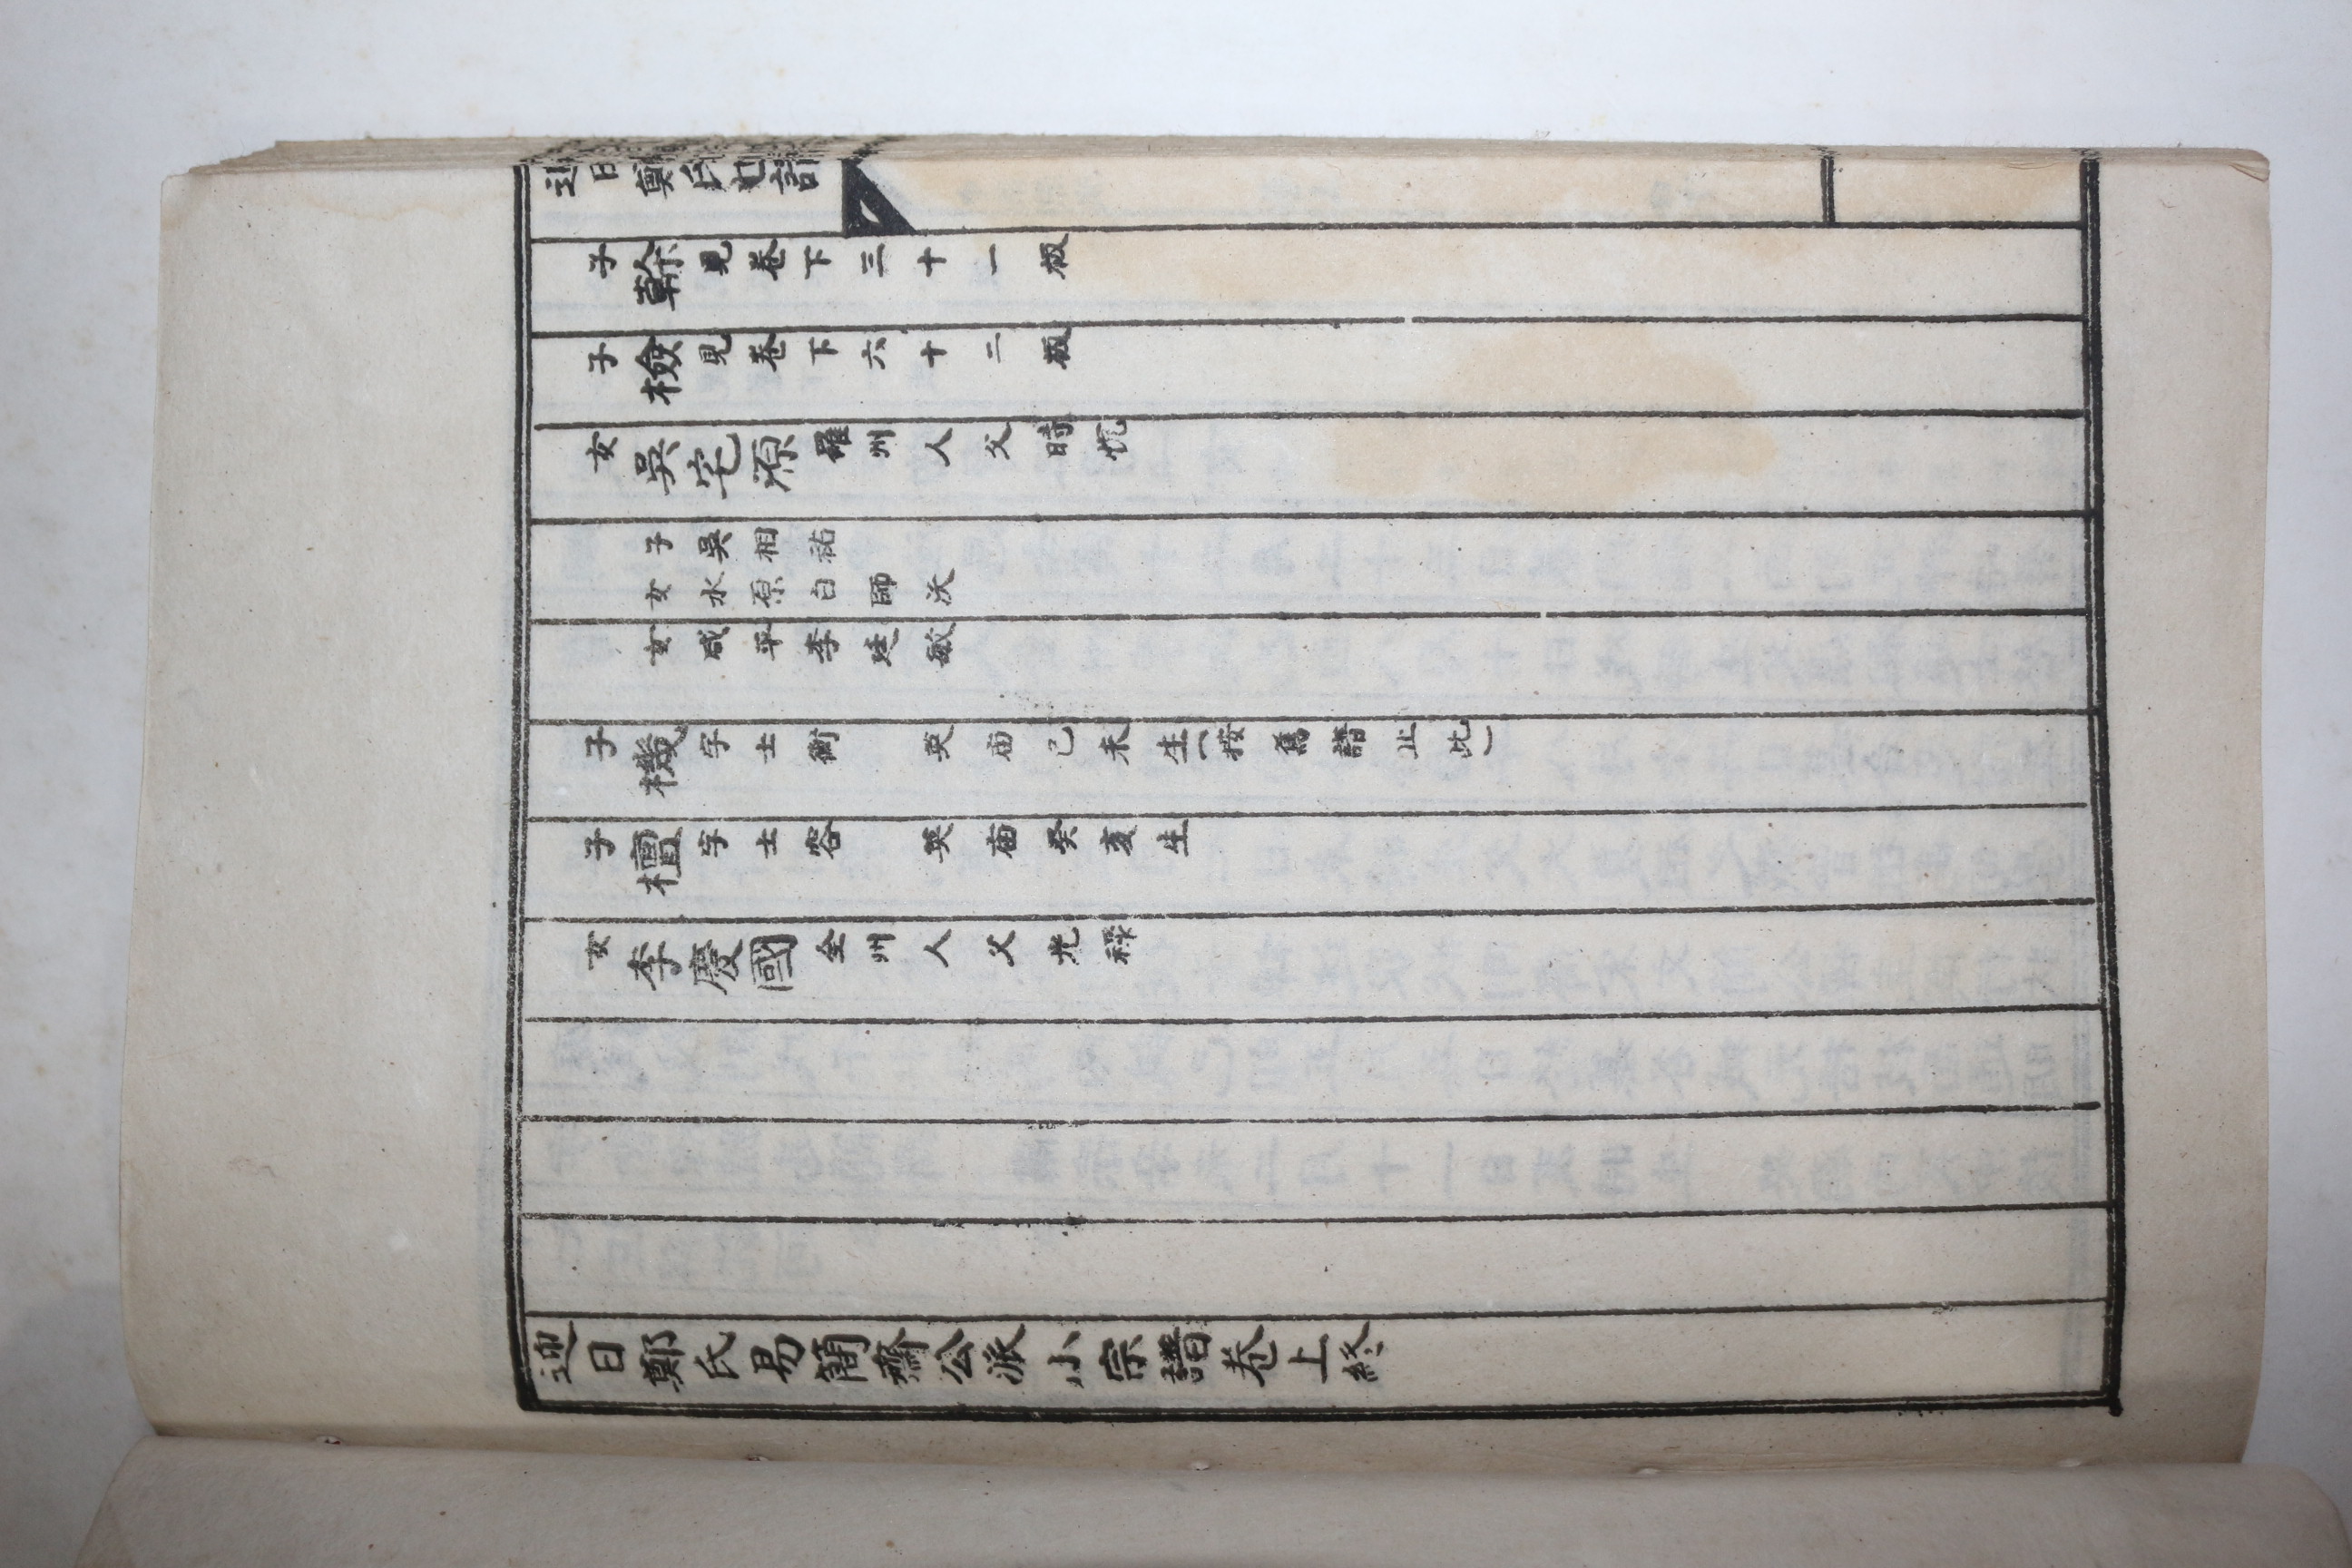 迎日鄭氏世譜
子榦見卷下三十一板
子檢見卷下六十二板
女吳宅源羅州人父時忱
子吳相祐
女水原白師沃
女咸平李廷敏
子機字士衡 英庙己未生(按舊譜止此)
子檀字士容 英庙癸亥生
女李慶國全州人父光祿
迎日鄭氏易簡齋公派小宗譜卷上終